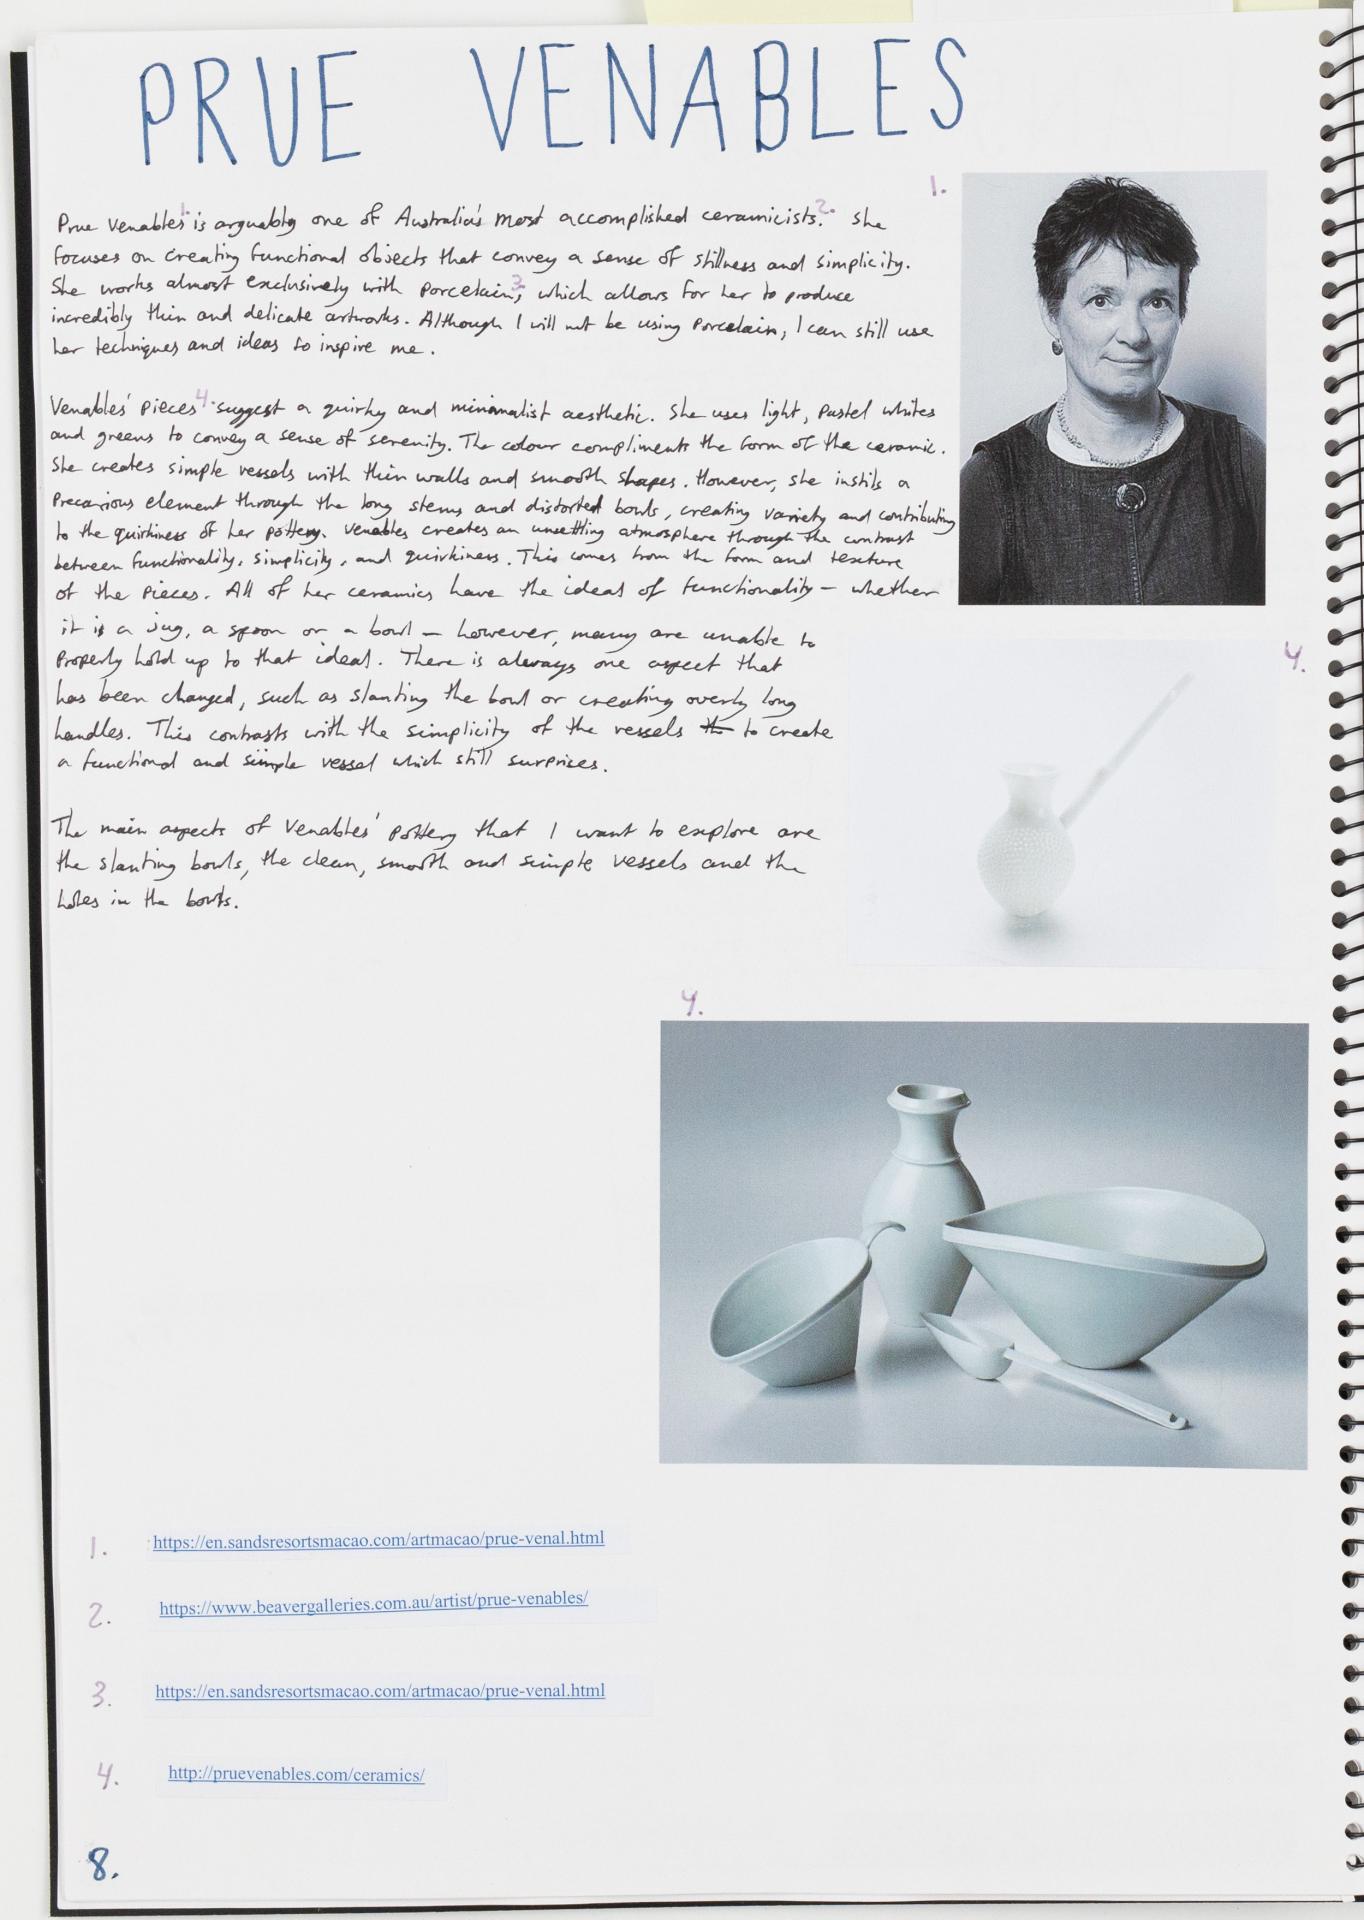 PRUE VENABLES
1.
Prue Venables1. is arguably one of Australia's most accomplished ceramicists.2. She
focuses on creating functional objects that convey a sense of stillness and simplicity.
She works almost exclusively with porcelain,3. which allows for her to produce
incredibly thin and delicate artworks. Although I will not be using porcelain, I can still use
her techniques and ideas to inspire me.
Venables' pieces4. suggest a quirky and minimalist aesthetic. She uses light, pastel whites
and greens to convey a sense of serenity. The colour compliments the form of the ceramic.
She creates simple vessels with thin walls and smooth shapes. However, she instils a
precarious element through the long stems and distorted bowls, creating variety and contributing
to the quirkiness of her pottery. Venables creates an unsettling atmosphere through the contrast
between functionality, simplicity, and quirkiness. This comes from the form and texture
of the pieces. All of her ceramics have the ideas of functionality – whether
it is a jug, a spoon or a bowl – however, many are unable to
properly hold up to that ideal. There is always one aspect that
has been changed, such as slanting the bowl or creating overly long
handles. This contrasts with the simplicity of the vessels to create
a functional and simple vessel which still surprises.
4.
The main aspects of Venables' pottery that I want to explore are
the slanting bowls, the clean, smooth and simple vessels and the
holes in the bowls.
4.
1. https://en.sandsresortsmacao.com/artmacao/prue-venal.html
2. https://www.beavergalleries.com.au/artist/prue-venables/
3. https://en.sandsresortsmacao.com/artmacao/prue-venal.html
4. http://pruevenables.com/ceramics/
8.